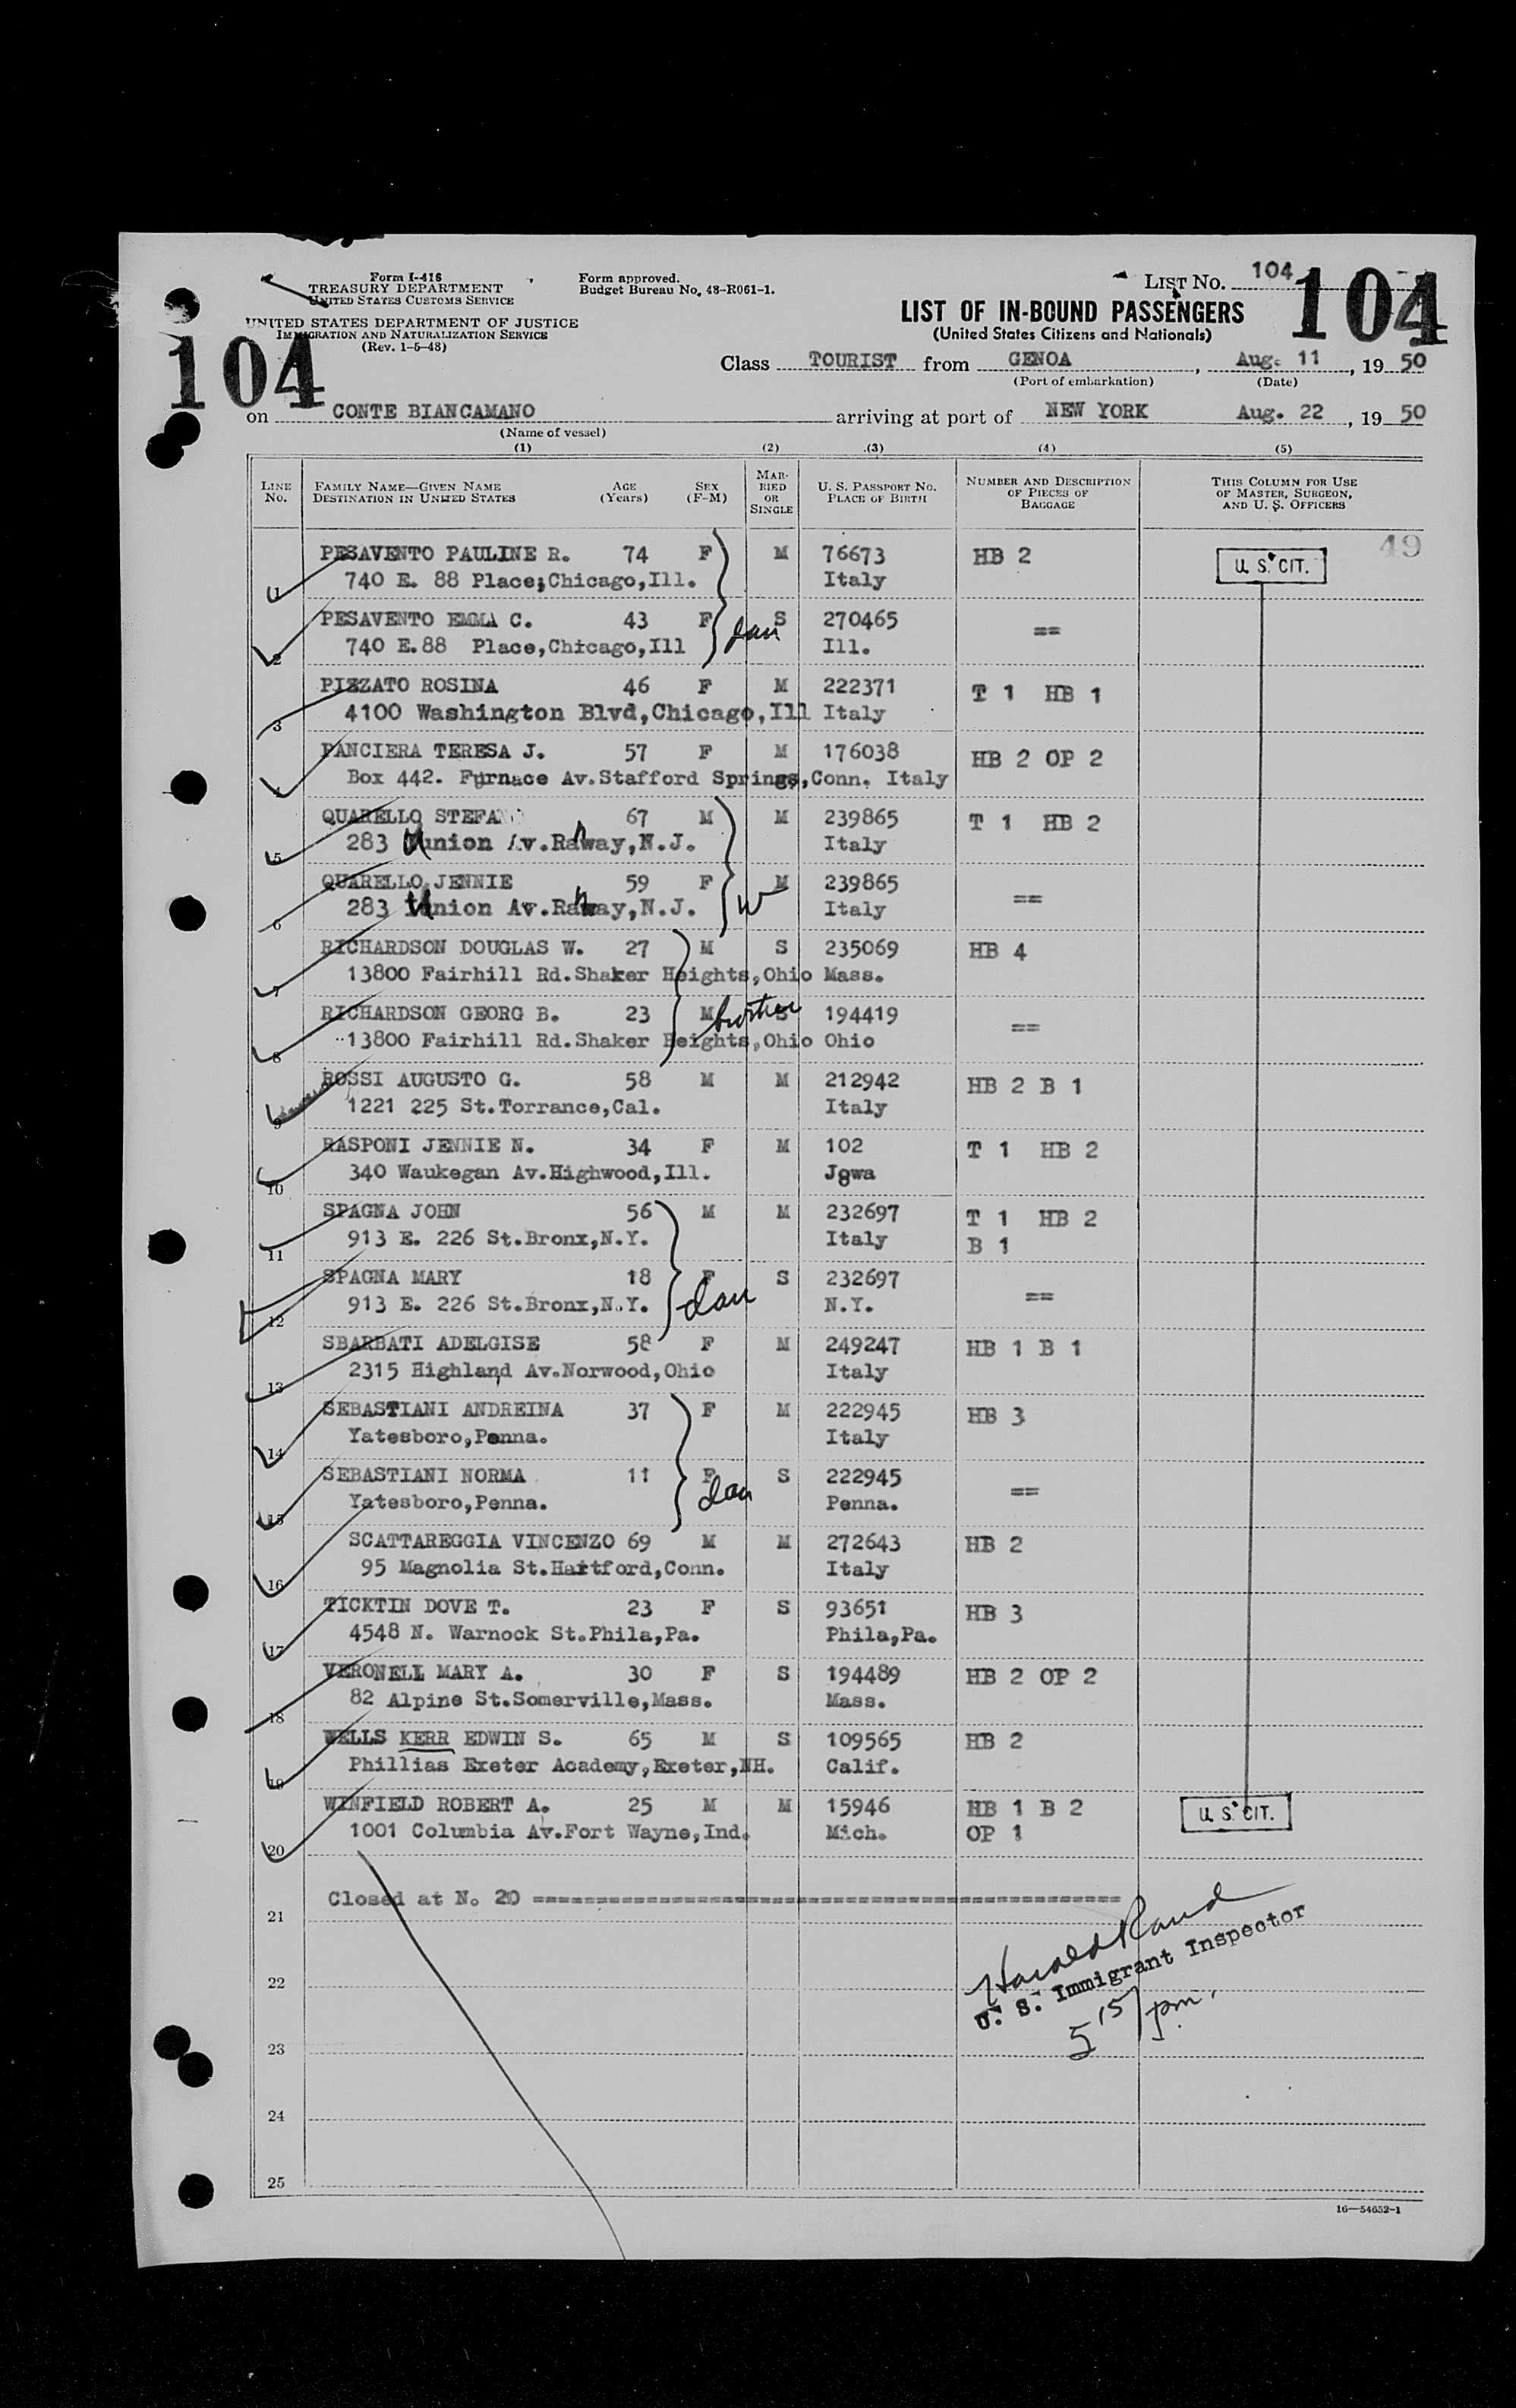 Form I-416
TREASURY DEPARTMENT
UNITED STATES CUSTOMS SERVICE
Form approved.
Budget Bureau No. 48-R061-1.
LIST No. 104
104
UNITED STATES DEPARTMENT OF JUSTICE
IMMIGRATION AND NATURALIZATION SERVICE
(Rev. 1-5-48)
LIST OF IN-BOUND PASSENGERS
(United States Citizens and Nationals)
104
Class TOURIST from GENOA, Aug. 11, 19 50
(Port of embarkation) (Date)
on CONTE BIANCAMANO arriving at port of NEW YORK Aug. 22, 19 50
(Name of vessel)
(1) (2) (3) (4) (5)
LINE No. FAMILY NAME—GIVEN NAME DESTINATION IN UNITED STATES AGE (Years) SEX (F-M) MARRIED OR SINGLE U. S. PASSPORT NO. PLACE OF BIRTH NUMBER AND DESCRIPTION OF PIECES OF BAGGAGE THIS COLUMN FOR USE OF MASTER, SURGEON, AND U. S. OFFICERS
49
PESAVENTO PAULINE R. 74 F M 76673 HB 2 U. S. CIT.
1 740 E. 88 Place,Chicago,Ill. Italy
PESAVENTO EMMA C. 43 F S 270465 ==
2 740 E.88 Place,Chicago,Ill dau Ill.
PIZZATO ROSINA 46 F M 222371 T 1 HB 1
3 4100 Washington Blvd,Chicago,Ill Italy
PANCIERA TERESA J. 57 F M 176038 HB 2 OP 2
4 Box 442. Furnace Av.Stafford Springs,Conn. Italy
QUARELLO STEFAN 67 M M 239865 T 1 HB 2
5 283 Union Av.Rahway,N.J. Italy
QUARELLO JENNIE 59 F M 239865 ==
6 283 Union Av.Rahway,N.J. W Italy
RICHARDSON DOUGLAS W. 27 M S 235069 HB 4
7 13800 Fairhill Rd.Shaker Heights,Ohio Mass.
RICHARDSON GEORG B. 23 M S 194419 ==
8 13800 Fairhill Rd.Shaker Heights,Ohio Ohio
ROSSI AUGUSTO G. 58 M M 212942 HB 2 B 1
9 1221 225 St.Torrance,Cal. Italy
RASPONI JENNIE N. 34 F M 102 T 1 HB 2
10 340 Waukegan Av.Highwood,Ill. Jowa
SPAGNA JOHN 56 M M 232697 T 1 HB 2
11 913 E. 226 St.Bronx,N.Y. Italy B 1
SPAGNA MARY 18 F S 232697 ==
12 913 E. 226 St.Bronx,N.Y. dau N.Y.
SBARBATI ADELGISE 58 F M 249247 HB 1 B 1
13 2315 Highland Av.Norwood,Ohio Italy
SEBASTIANI ANDREINA 37 F M 222945 HB 3
14 Yatesboro,Penna. Italy
SEBASTIANI NORMA 11 F S 222945 ==
15 Yatesboro,Penna. dau Penna.
SCATTAREGGIA VINCENZO 69 M M 272643 HB 2
16 95 Magnolia St.Hartford,Conn. Italy
TICKTIN DOVE T. 23 F S 93651 HB 3
17 4548 N. Warnock St.Phila,Pa. Phila,Pa.
VERONELL MARY A. 30 F S 194489 HB 2 OP 2
18 82 Alpine St.Somerville,Mass. Mass.
WELLS KERR EDWIN S. 65 M S 109565 HB 2
19 Phillias Exeter Academy,Exeter,NH. Calif.
WINFIELD ROBERT A. 25 M M 15946 HB 1 B 2 U. S. CIT.
20 1001 Columbia Av.Fort Wayne,Ind. Mich. OP 1
Closed at N. 20 ==============================================
21
Harold Rand
22
U. S. Immigrant Inspector
5 15/pm.
23
24
25
16—54652-1